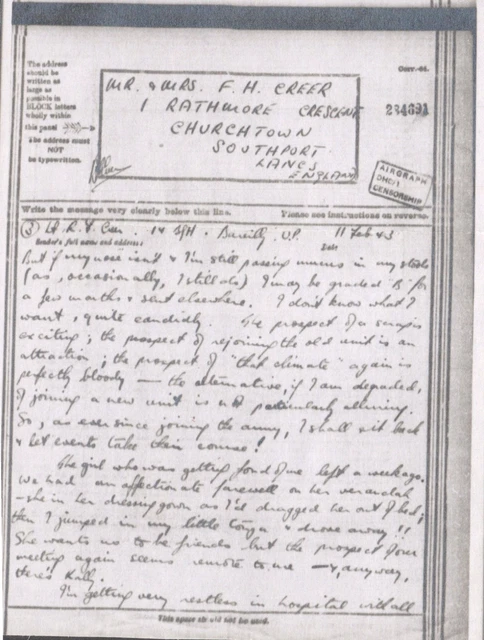 The address
should be
written as
large as
possible in
BLOCK letters
wholly within
this panel
The address must
NOT
be typewritten.
MR. & MRS. F. H. CREER
1 RATHMORE CRESCENT
CHURCHTOWN
SOUTHPORT
LANCS
ENGLAND
234691
AIRGRAPH
CENSORSHIP
Write the message very clearly below this line.
Please see instructions on reverse.
(3) Lt. R. F. Creer. 14 BGH. Bareilly. U.P. 11 Feb 43
Sender's full name and address
Date
But if my nose isn't & I'm still passing mucus in my stools
(as, occasionally, I still do) I may be graded 'B' for
a few months & sent elsewhere. I don't know what I
want, quite candidly. The prospect of a scrap is
exciting; the prospect of rejoining the old unit is an
attraction; the prospect of "that climate" again is
perfectly bloody — the alternative, if I am degraded,
of joining a new unit is not particularly alluring.
So, as ever since joining the army, I shall sit back
& let events take their course!
The girl who was getting fond of me left a week ago.
We had an affectionate farewell on her verandah
- she in her dressing gown as I'd dragged her out of bed;
then I jumped in my little tonga & drove away!!
She wants us to be friends but the prospect of our
meeting again seems remote to me — &, anyway,
there's Kally.
I'm getting very restless in hospital with all
This space should not be used.